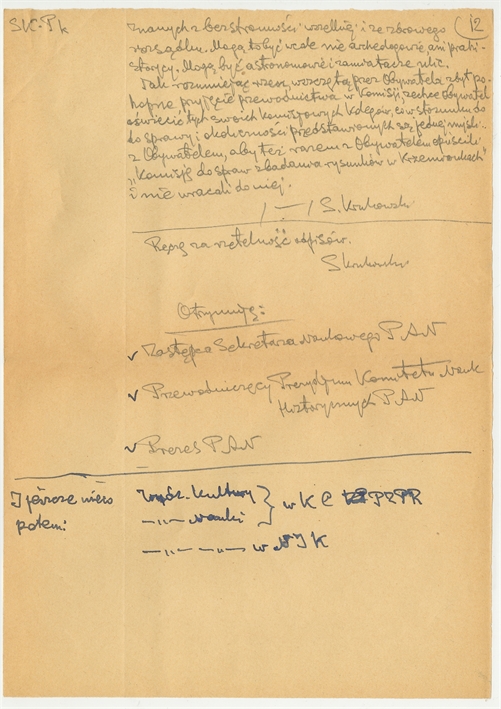 SK-Pk
12
znanych z bezstronności względnie i ze zdrowego
rozsądku. Mogą to być wcale nie archeologowie ani prahi-
storycy. Mogą być astronomowie i zamiatacze ulic.
Tak rozumiejąc rzecz, wszczętą przez Obywatela zbyt po-
hopne przyjęcie przewodnictwa w Komisji, zechce Obywatel
oświecić tych swoich komisyjnych kolegów, co w stosunku do
do sprawy i okoliczności przedstawionych są jednej myśli
z Obywatelem, aby też razem z Obywatelem opuścili
"Komisję do spraw zbadania rysunków w Krzemionkach"
i nie wracali do niej.
/-/ S. Krukowski
Ręczę za rzetelność odpisów.
S Krukowski
Otrzymują:
✓ Zastępca Sekretarza Naukowego PAN
✓ Przewodniczący Prezydium Komitetu Nauk
Historycznych PAN
✓ Prezes PAN
I jeszcze nieco
potem:
Wydz. Kultury
—„— Nauki } w KC PZPR
—„— —„— w NIK